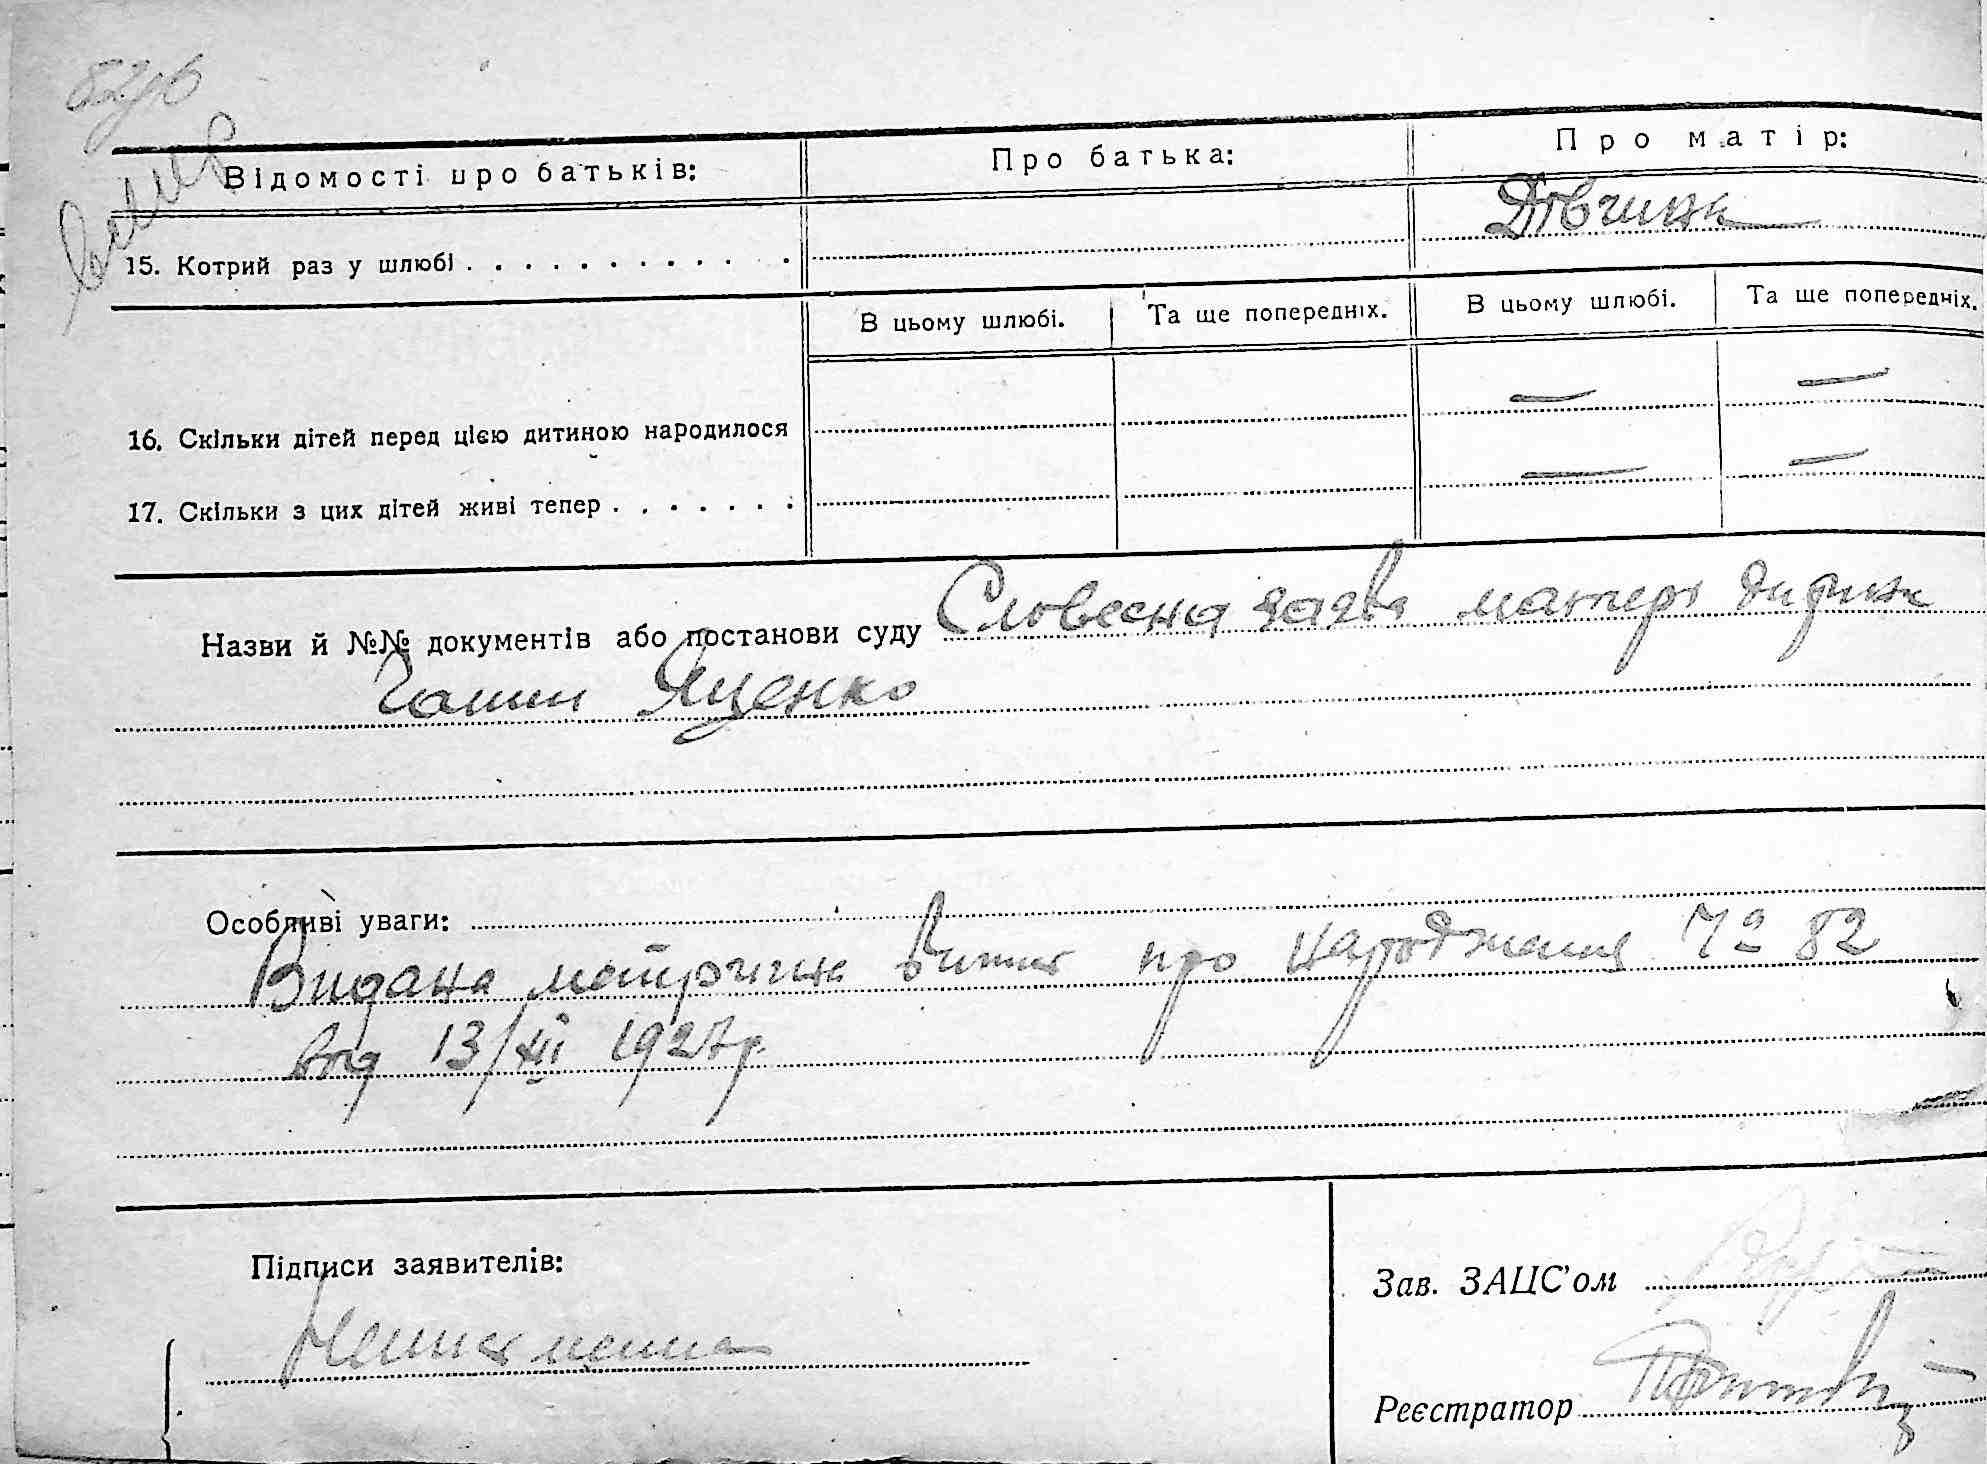 Відомості про батьків:
Про батька:
Про матір:
15. Котрий раз у шлюбі
Дівчина
В цьому шлюбі. Та ще попередніх. В цьому шлюбі. Та ще попередніх.
16. Скільки дітей перед цією дитиною народилося — —
17. Скільки з цих дітей живі тепер — —
Назви й №№ документів або постанови суду Словесна заява матері
Яценко
Особливі уваги:
Видана про народження № 82
від 13/XII 1927р.
Підписи заявителів:
Зав. ЗАЦС'ом
Реєстратор